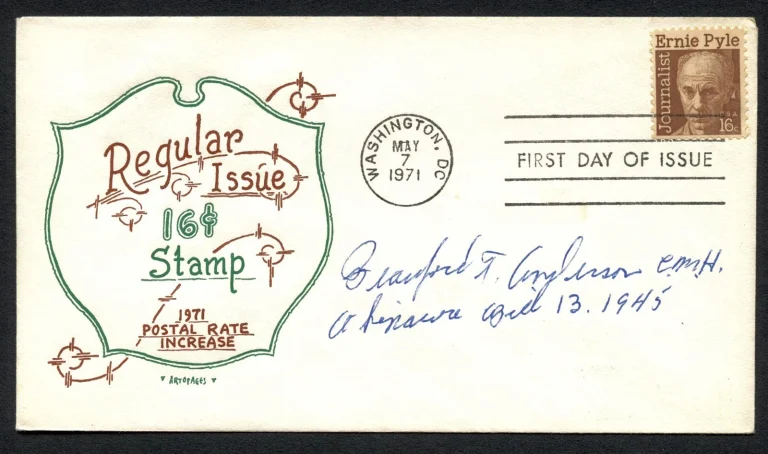 Ernie Pyle
Journalist
USA
16c
Regular
Issue
16¢
Stamp
1971
POSTAL RATE
INCREASE
ARTOPAGES
WASHINGTON, DC
MAY
7
1971
FIRST DAY OF ISSUE
Beauford T. Anderson C.M.H.
Okinawa April 13. 1945